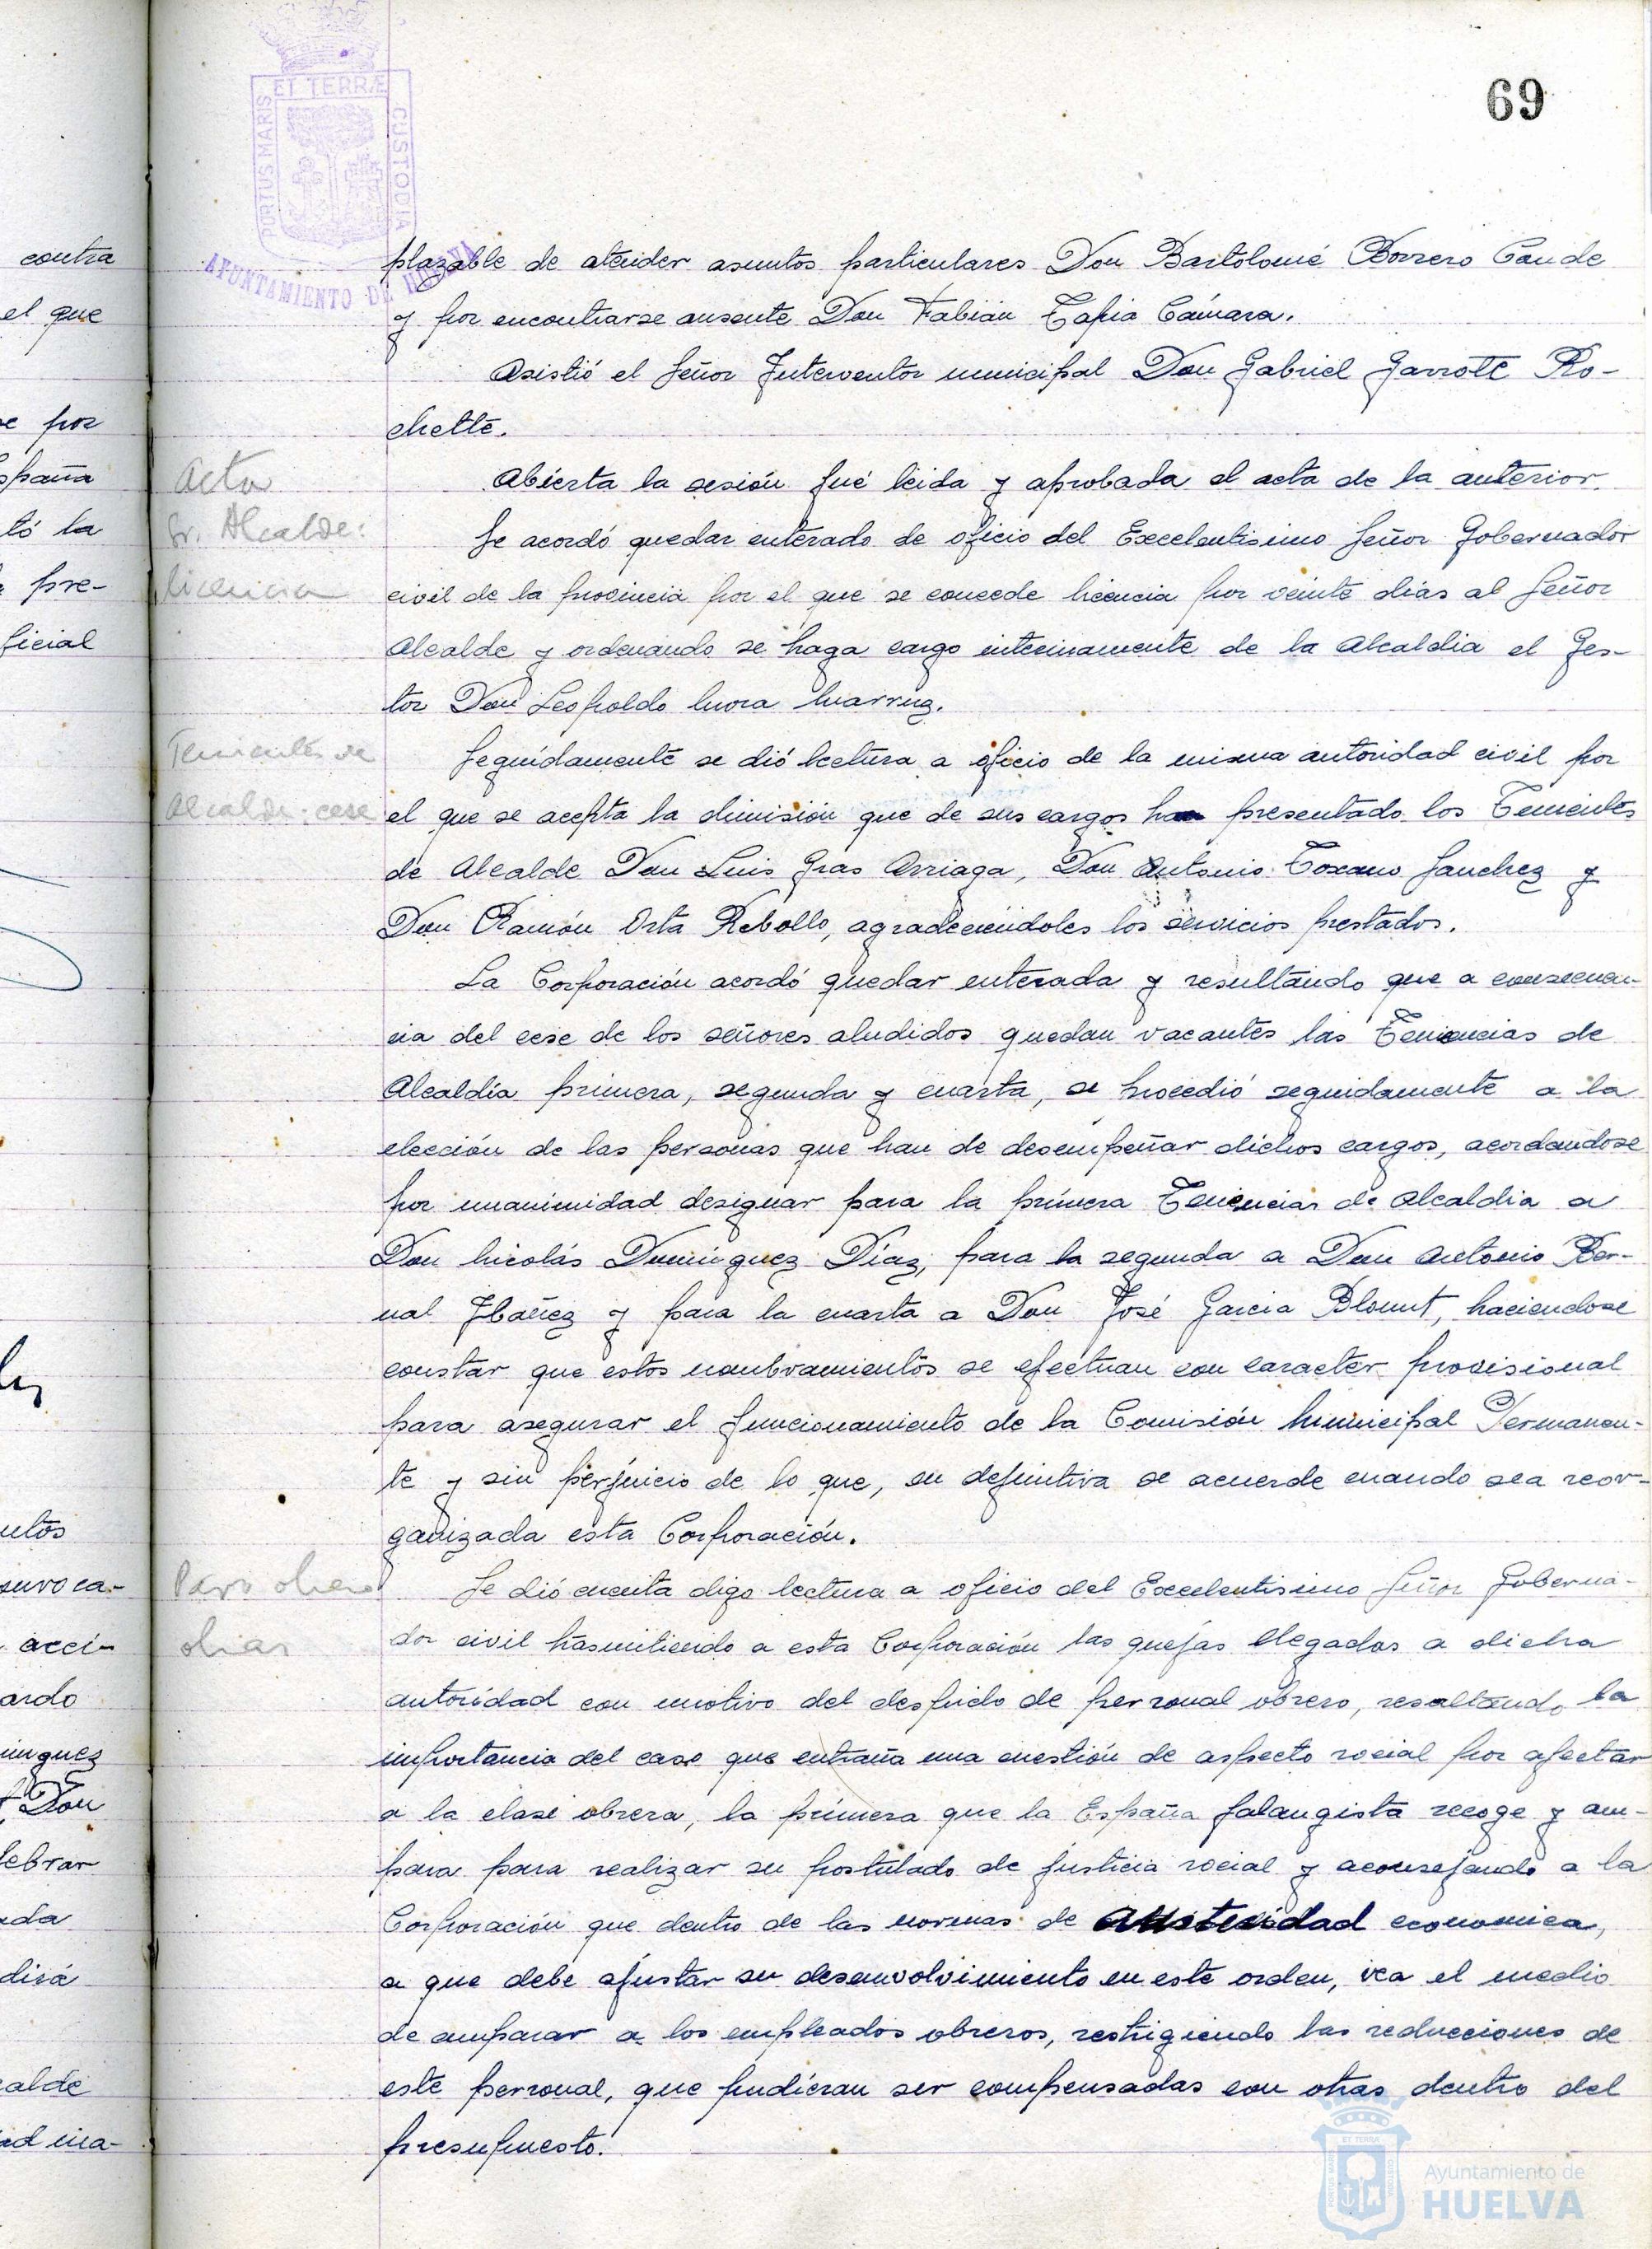 69
PORTUS MARIS ET TERRÆ CUSTODIA
AYUNTAMIENTO DE HUELVA
plazable de atender asuntos particulares Don Bartolomé Borrero Caude
y por encontrarse ausente Don Fabián Tapia Cámara.
Asistió el Señor Interventor municipal Don Gabriel Garrote Ro-
chette.
Acta
Abierta la sesión fué leida y aprobada el acta de la anterior.
Sr. Alcalde:
Se acordó quedar enterado de oficio del Excelentisimo Señor Gobernador
licencia
civil de la provincia por el que se concede licencia por veinte dias al Señor
Alcalde y ordenando se haga cargo interinamente de la Alcaldia el Ges-
tor Don Leopoldo Mora Marruz.
Tenientes de
Seguidamente se dió lectura a oficio de la misma autoridad civil por
Alcalde: cese
el que se acepta la dimisión que de sus cargos han presentado los Tenientes
de Alcalde Don Luis Gras Arriaga, Don Antonio Toscano Sanchez y
Don Ramón Orta Rebollo, agradeciéndoles los servicios prestados.
La Corporación acordó quedar enterada y resultando que a consecuen-
cia del cese de los señores aludidos quedan vacantes las Tenencias de
Alcaldía primera, segunda y cuarta, se procedió seguidamente a la
elección de las personas que han de desempeñar dichos cargos, acordandose
por unanimidad designar para la primera Tenencias de Alcaldia a
Don Nicolás Dominguez Díaz, para la segunda a Don Antonio Ber-
nal Ibañez y para la cuarta a Don José Garcia Blount, haciendose
constar que estos nombramientos se efectuan con caracter provisional
para asegurar el funcionamiento de la Comisión Municipal Permanen-
te y sin perjuicio de lo que, en definitiva se acuerde cuando sea reor-
ganizada esta Corporación.
Paro obrero
Se dió cuenta digo lectura a oficio del Excelentisimo Señor Goberna-
dor civil trasmitiendo a esta Corporación las quejas llegadas a dicha
autoridad con motivo del despido de personal obrero, resaltando la
importancia del caso que entraña una cuestión de aspecto social por afectar
a la clase obrera, la primera que la España falangista recoge y am-
para para realizar su postulado de justicia social y aconsejando a la
Corporación que dentro de las normas de austeridad economica,
a que debe ajustar su desenvolvimiento en este orden, vea el medio
de amparar a los empleados obreros, restrigiendo las reducciones de
este personal, que pudieran ser compensadas con otras dentro del
presupuesto.
contra
el que
por
España
tó la
pre-
ficial
ardo
Don
lebrar
dirá
Ayuntamiento de
HUELVA